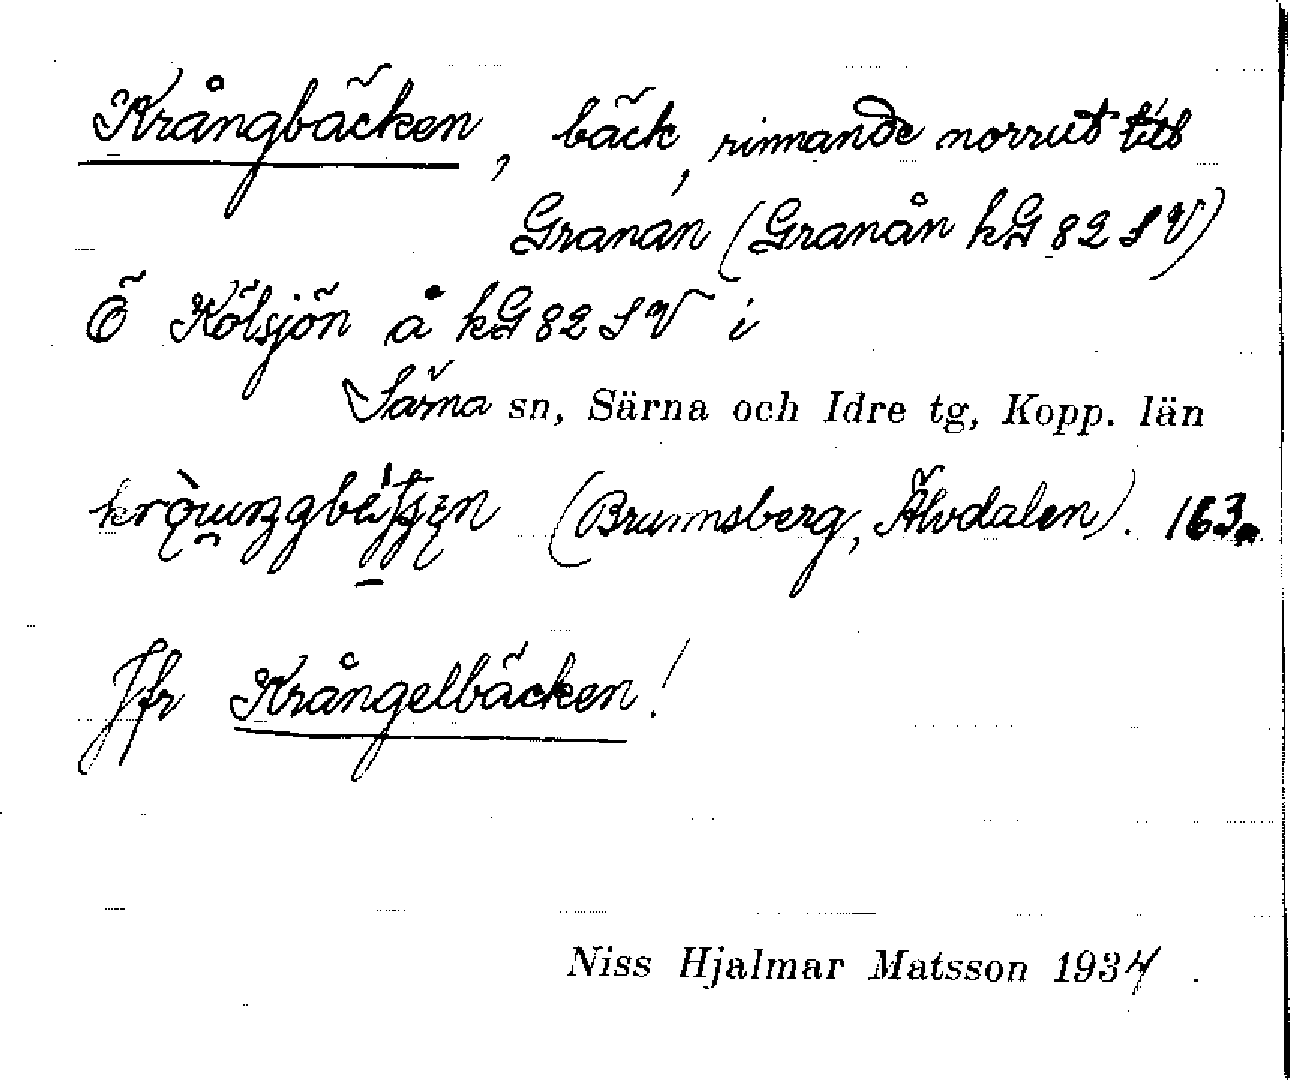 Krångbäcken, bäck, rinnande norrut till
Granan (Granån kG 82 SV)
Ö Kölsjön å kG 82 SV i
Särna sn, Särna och Idre tg, Kopp. län
(Brunnsberg, Älvdalen). 163.
Jfr Krångelbäcken!
Niss Hjalmar Matsson 1934.